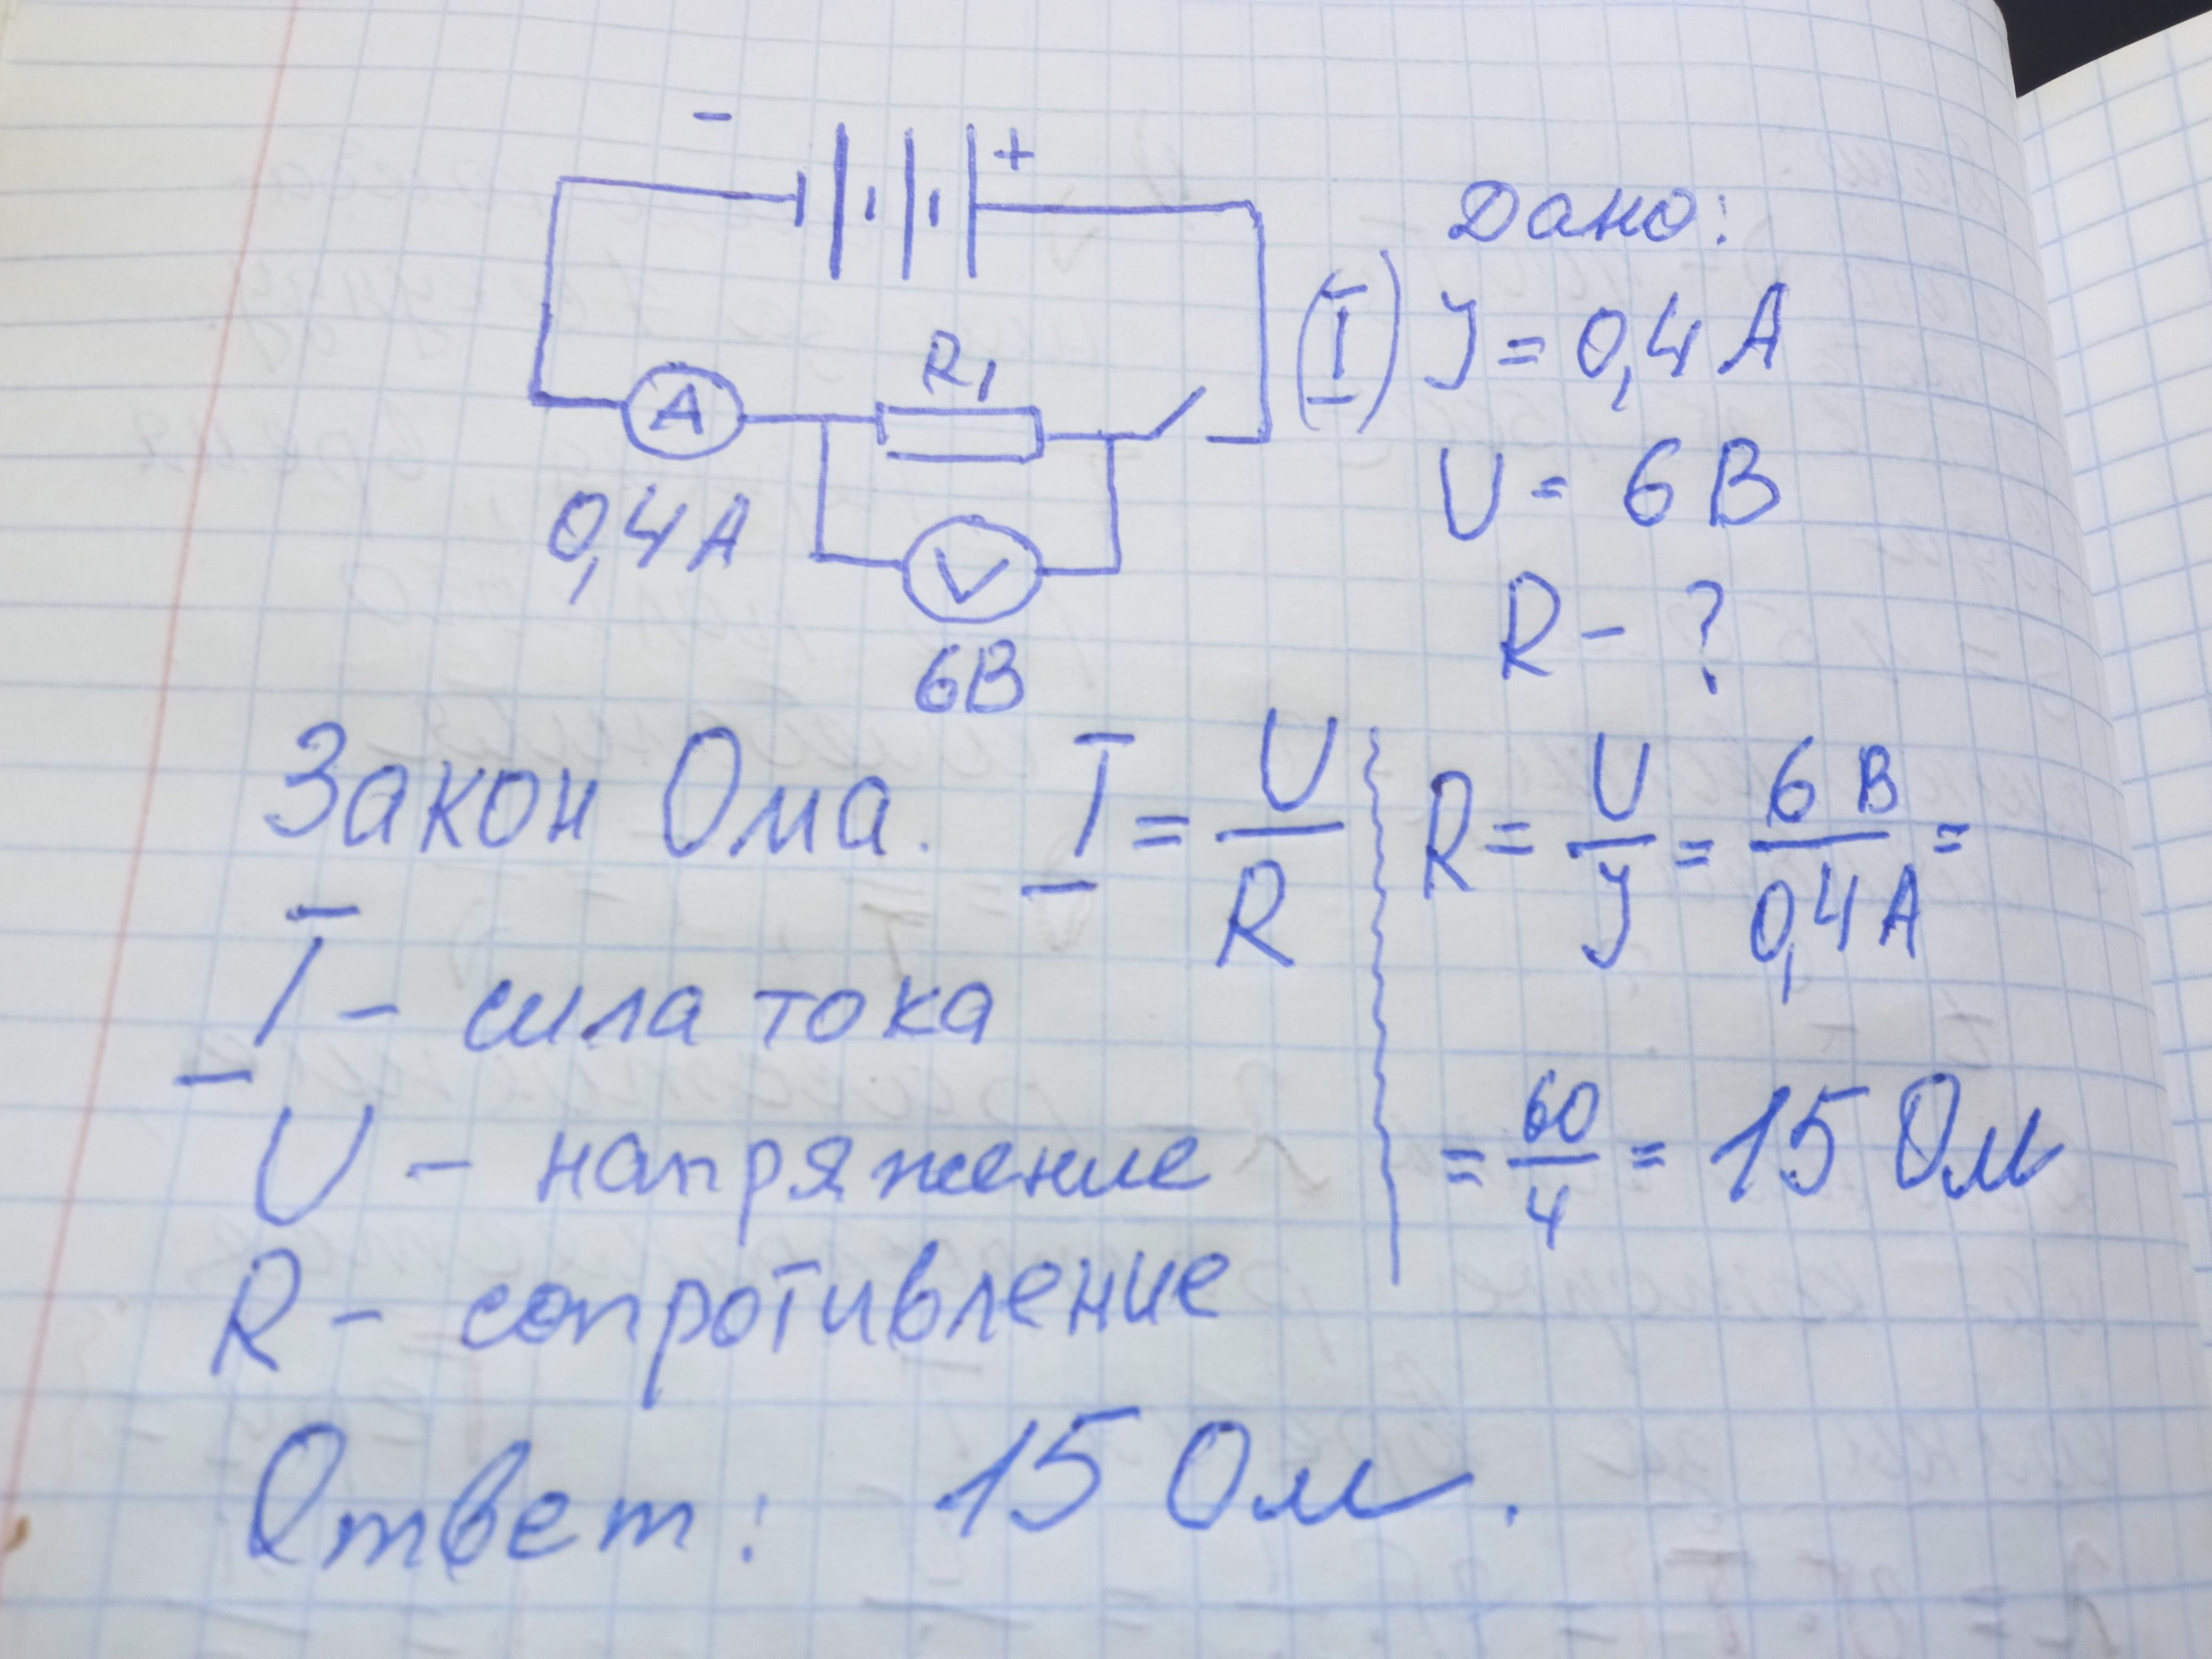 - +
R1
A
0,4 A
V
6В
Дано:
(I) J = 0,4 A
U = 6 В
R - ?
Закон Ома. I = U/R
I - сила тока
U - напряжение
R - сопротивление
R = U/J = 6 В/0,4 А =
= 60/4 = 15 Ом
Ответ: 15 Ом.